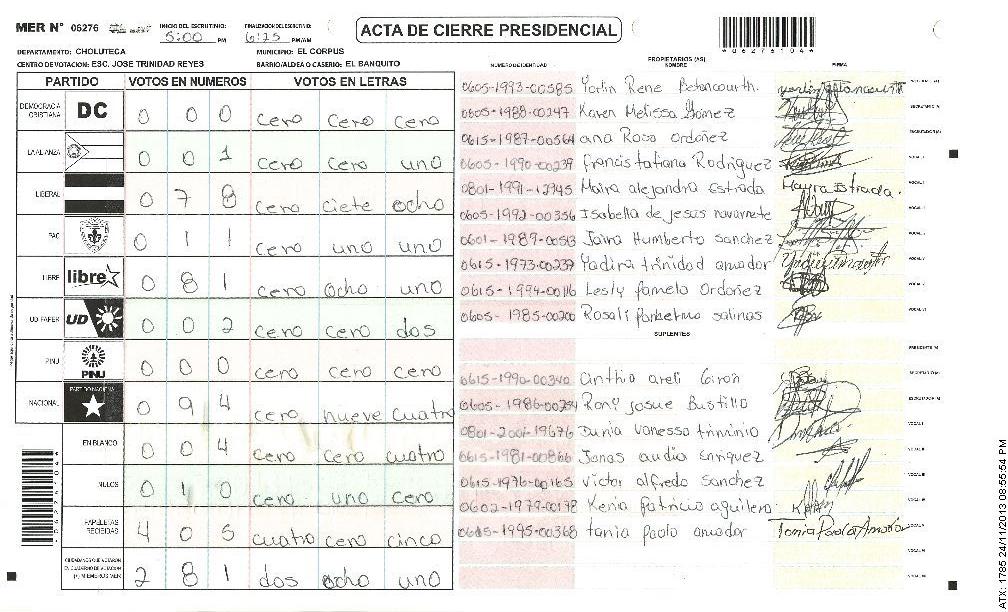 MER N° 06276 INICIO DEL ESCRUTINIO: 5:00 PM FINALIZACION DEL ESCRUTINIO: 6:25 PM/AM
ACTA DE CIERRE PRESIDENCIAL
*06276104*
DEPARTAMENTO: CHOLUTECA MUNICIPIO: EL CORPUS
CENTRO DE VOTACION: ESC. JOSE TRINIDAD REYES BARRIO/ALDEA O CASERIO: EL BANQUITO
PARTIDO VOTOS EN NUMEROS VOTOS EN LETRAS
DEMOCRACIA CRISTIANA DC 0 0 0 cero cero cero
LA ALIANZA 0 0 1 cero cero uno
LIBERAL 0 7 8 cero ciete ocho
PAC 0 1 1 cero uno uno
LIBRE libre 0 8 1 cero ocho uno
UD FAPER UD 0 0 2 cero cero dos
PINU PINU 0 0 0 cero cero cero
NACIONAL PARTIDO NACIONAL 0 9 4 cero nueve cuatro
EN BLANCO 0 0 4 cero cero cuatro
NULOS 0 1 0 cero uno cero
PAPELETAS RECIBIDAS 4 0 5 cuatro cero cinco
CIUDADANOS QUE VOTARON EN CUADERNO DE VOTACION (+) MIEMBROS MER 2 8 1 dos ocho uno
PROPIETARIOS (AS)
NUMERO DE IDENTIDAD NOMBRE FIRMA
0605-1993-00585 Yorlin Rene Betancourth.
0605-1988-00247 Karen Melissa Gomez
0615-1987-00564 ana Rosa Ordoñez
0605-1990-00239 francis tatiana Rodriguez
0801-1991-12345 Maira alejandra Estrada Mayra Estrada.
0605-1992-00356 Isabella de Jesus navarrete
0601-1989-00513 Jaira Humberto sanchez
0615-1973-00237 Yadira trinidad amador
0615-1994-00116 Lesly pamela Ordoñez
0605-1985-00200 Rosali salinas
SUPLENTES
0615-1990-00340 Cinthia areli Giron
0605-1986-00254 Rony Josue Bustillo
0801-2001-19676 Dunia vanessa
0615-1981-00866 Jonas audia Enriquez
0615-1976-00165 victor alfredo sanchez
0602-1979-00178 Kenia patricia aguilera
0615-1995-00368 tania paola amador Tania Paola Amador
ATX: 1785 24/11/2013 08:55:54 PM